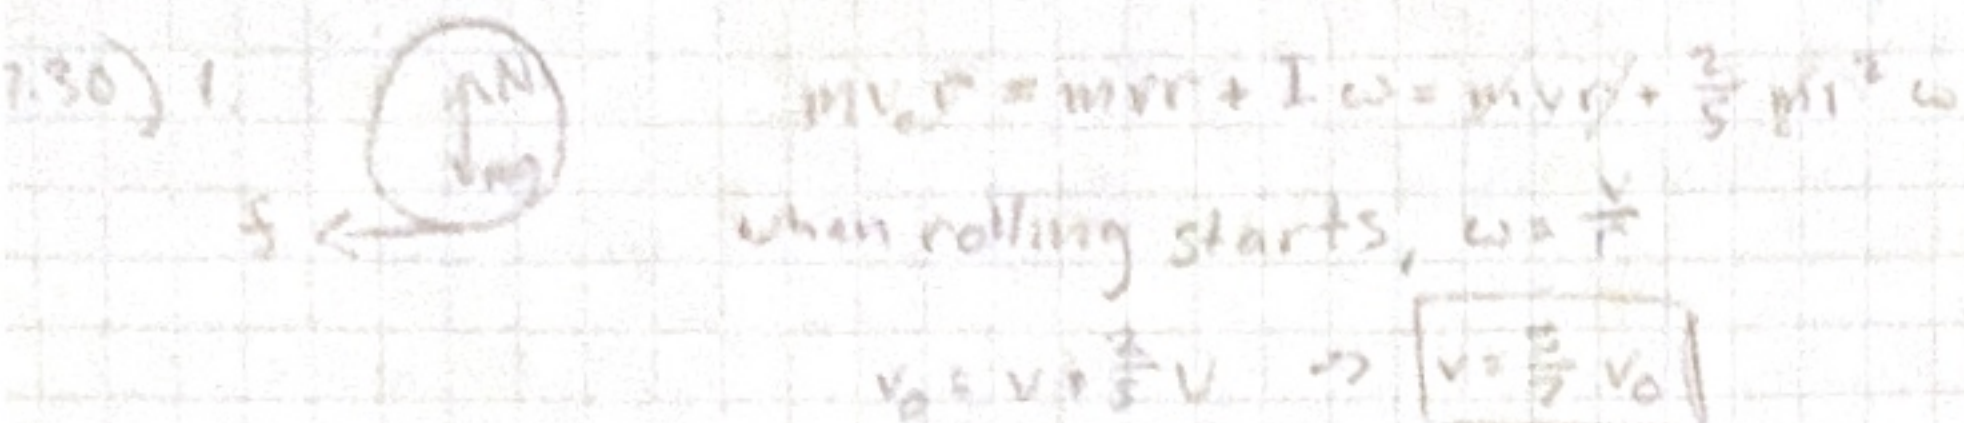 7.30) 1.
N
mg
f
mv₀r = mvr + Iω = mvr + 2/5 mr² ω
when rolling starts, ω = v/r
v₀ = v + 2/5 v ⇒ v = 5/7 v₀